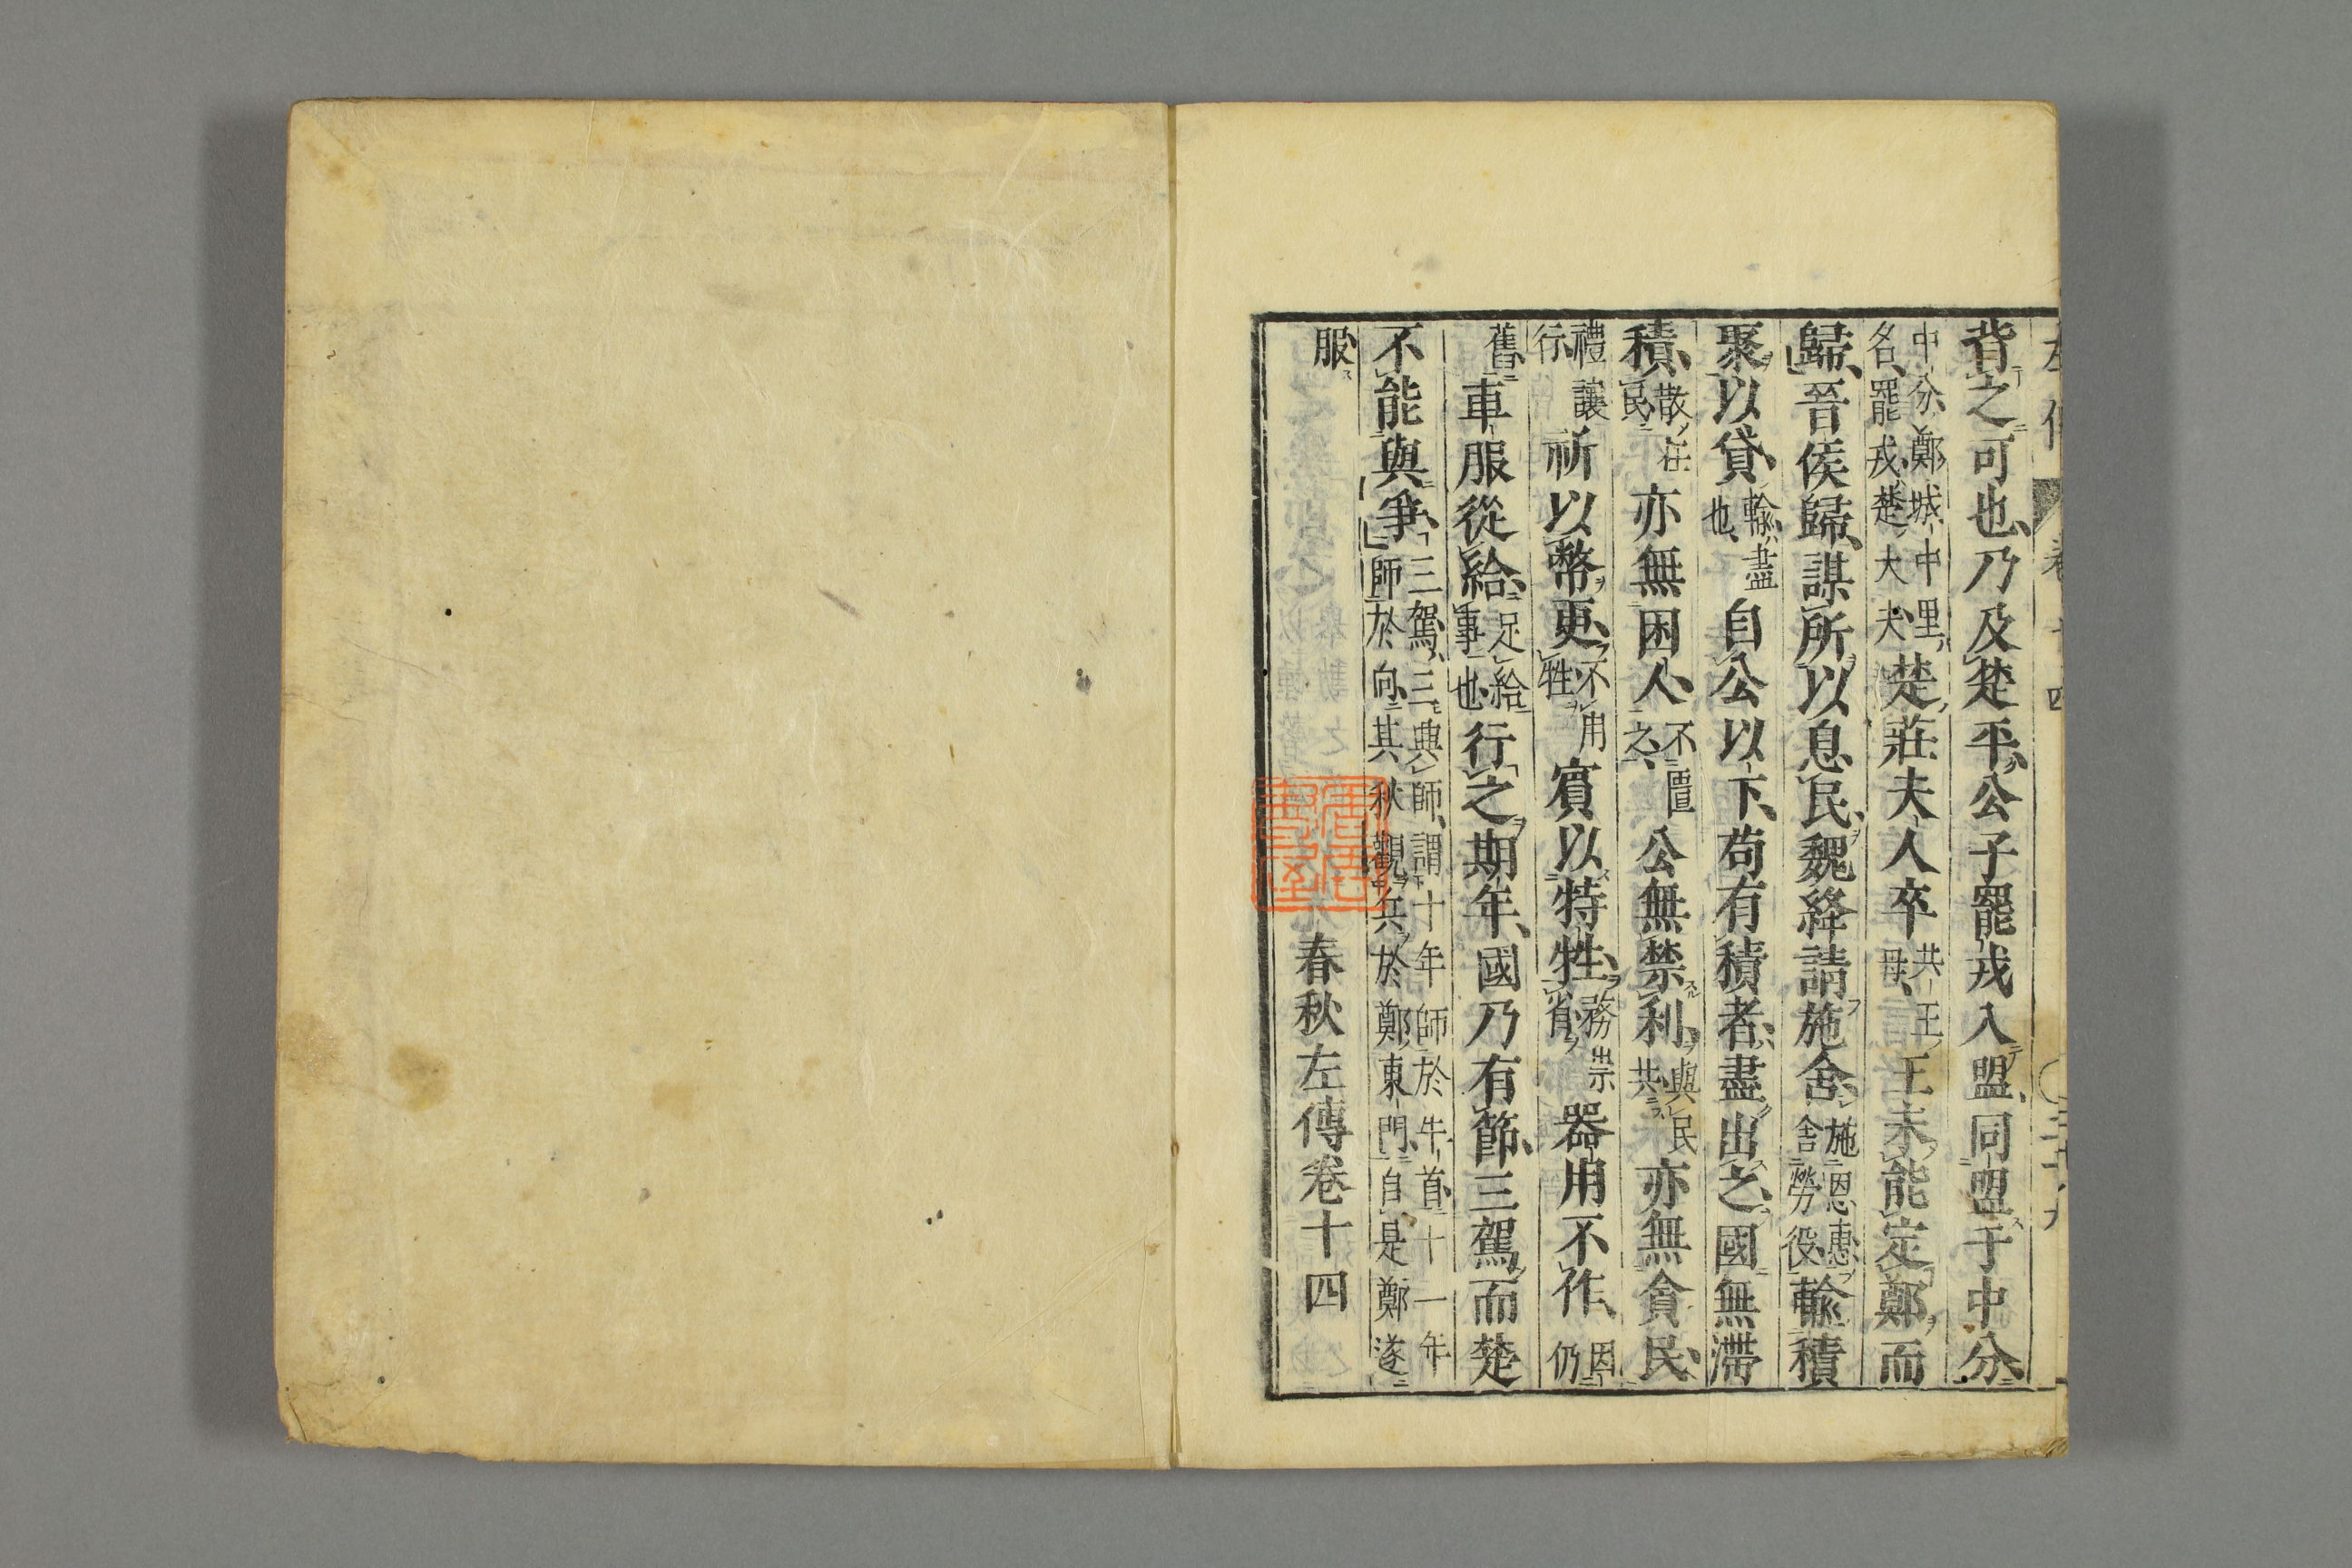 背之可也乃及楚平公子罷戎入盟同盟于中分
中分鄭城中里
名罷戎楚大夫
楚莊夫人卒
共王
母
王未能定鄭而
歸晉侯歸謀所以息民魏絳請施舍
施恩惠
舍勞役
輸積
聚以貸
輸盡
也
自公以下苟有積者盡出之國無滯
積
散在
民
亦無困人
不匱
之
公無禁利
與民
共
亦無貪民
禮讓
行
祈以幣更
不用
牲
賓以特牲
務崇
省
器用不作
因仍
舊
車服從給
足給
事也
行之期年國乃有節三駕而楚
不能與爭
三駕三興師謂十年師於牛首十一年
師於向其秋觀兵於鄭東門自是鄭遂
服
春秋左傳卷十四